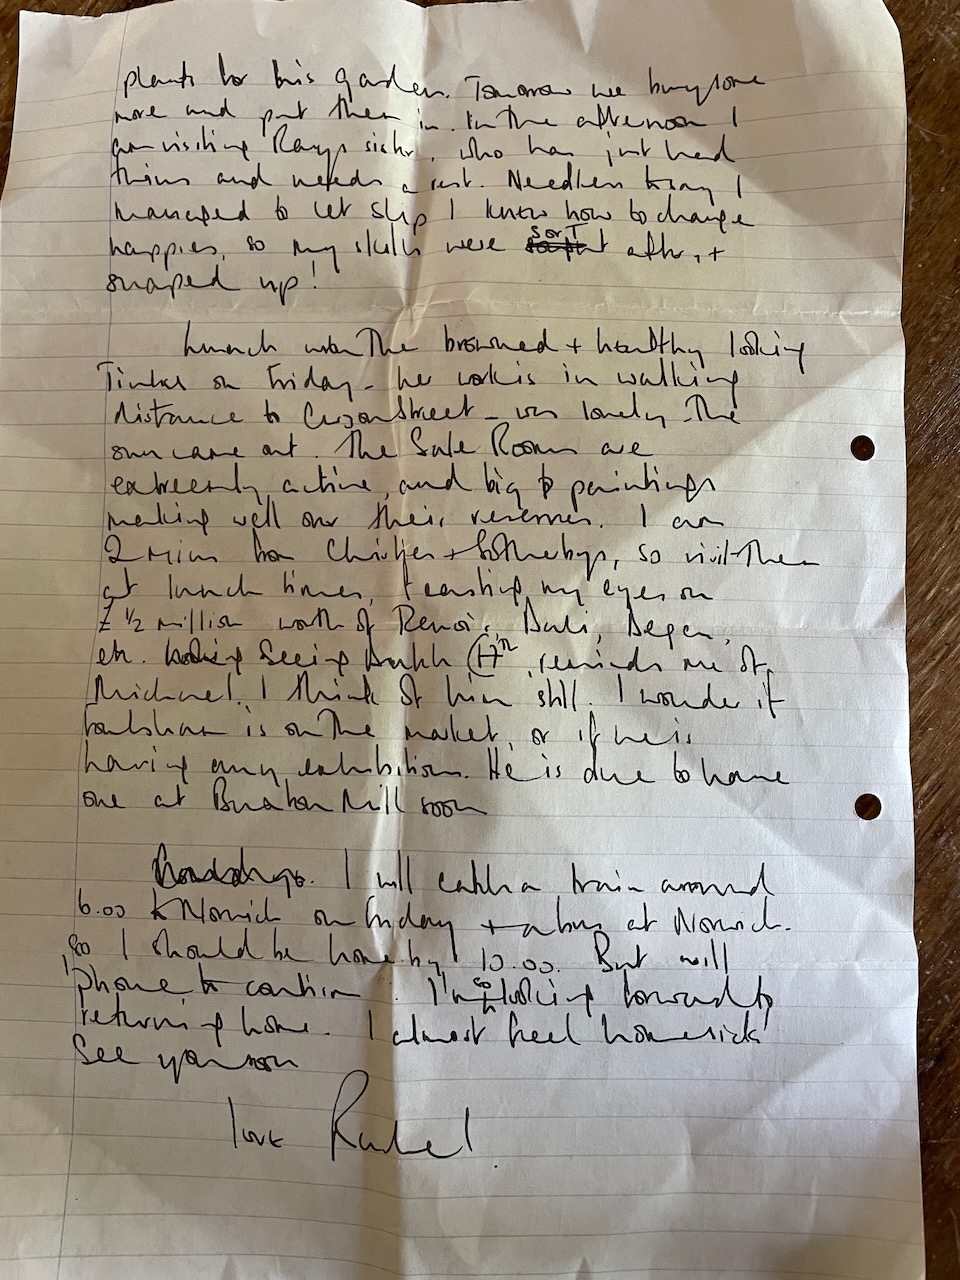 plants for his garden. Tomorrow we buy some
more and put them in. In the afternoon I
am visiting Rays sister, who has just had
twins and needs a rest. Needless to say I
managed to let slip I know how to change
nappies, so my skills were sort after, +
snaped up!
Lunch with The browned + healthy looking
on Friday - her work is in walking
distance to Curzon Street - was lovely. The
sun came out. The Sale Rooms are
extreemly active, and big paintings
making well over their reserves. I am
2 mins from Christies + Sothebys, so visit Them
at lunch times, feasting my eyes on
£ 1/2 million worth of Renoir, Dali, Degas,
etc. Seeing reminds me of
Michael. I think of him still. I wonder if
is on The market, or if he is
having any exhibitions. He is due to have
one at Buxton Mill soon
I will catch a train around
6.00 to Norwich on Friday + a bus at Norwich.
so I should be home by 10.00. But will
phone to confirm. I'm so looking forward to
returning home. I almost feel homesick
See you soon
love Rachel